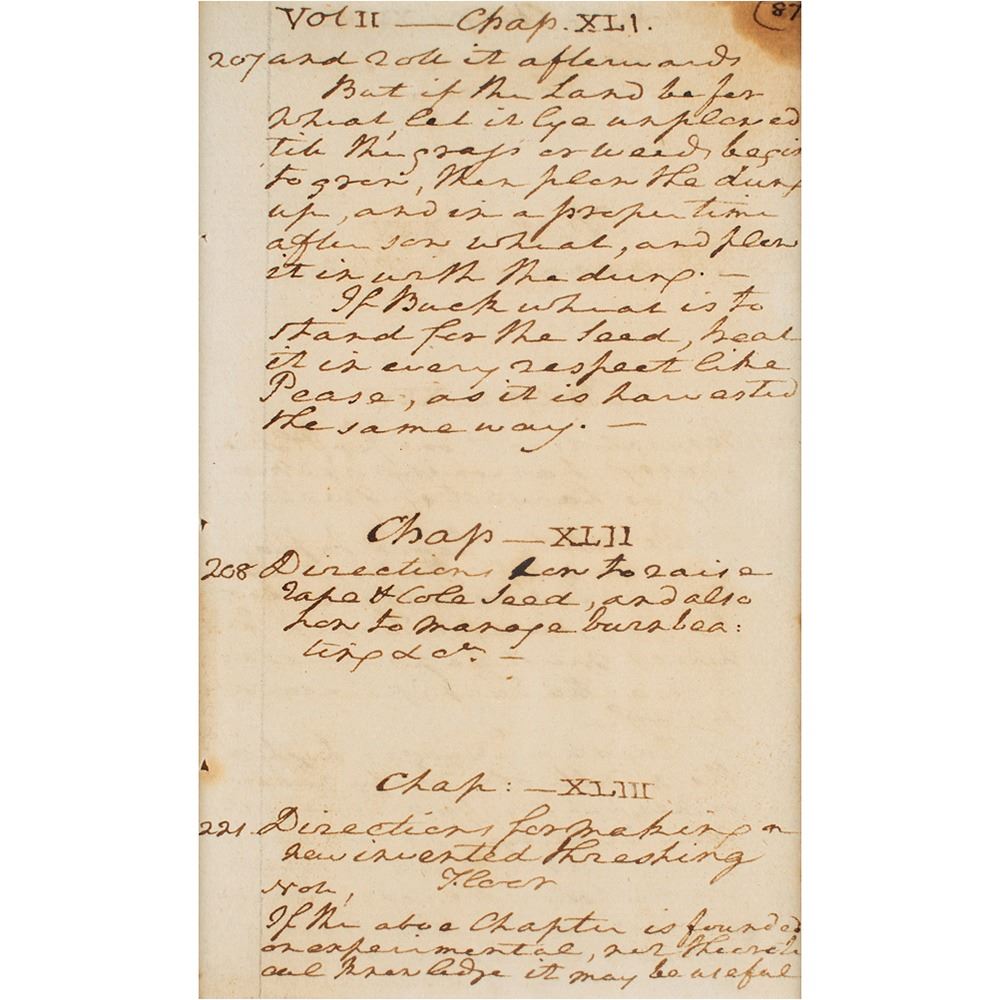 Vol II — Chap. XLI. (87
207 and role it afterwards
But if the Land be for
wheat, let it lye unplowed
till the grass or weeds begin
to grow, then plow the dung
up, and in a proper time
after sow wheat, and plow
it in with the dung. —
If Buckwheat is to
stand for the Seed, treat
it in every respect like
Pease, as it is harvested
the same way. —
Chap — XLII
208 Directions how to raise
rape & Cole Seed, and also
how to manage burnbea:
ting &ca. —
Chap: — XLIII
221. Directions for making a
new invented threshing
Floor
Note,
If the above Chapter is founded
on experimental, not theoreti
cal Knowledge it may be useful